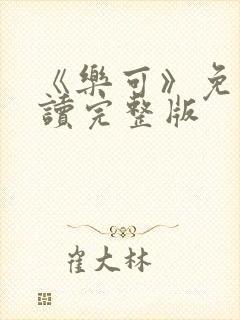 《樂可》免
讀完整版
崔大林